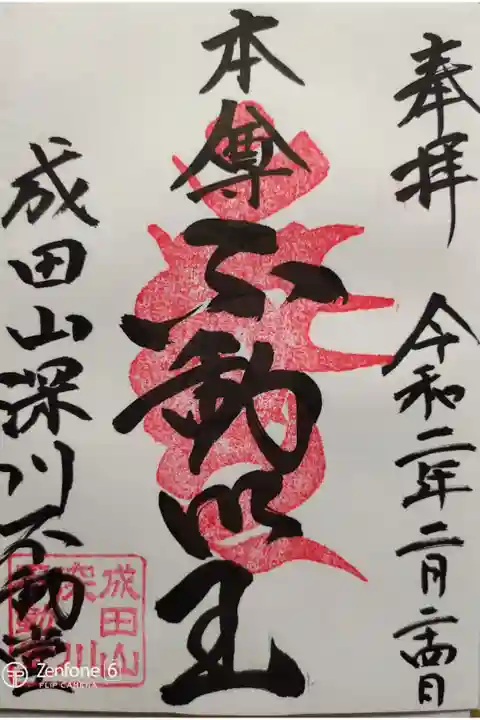 奉拝 令和二年二月二十四日
本尊不動明王
成田山深川不動堂
成田山
深川
不動堂
Zenfone 6
FLIP CAMERA